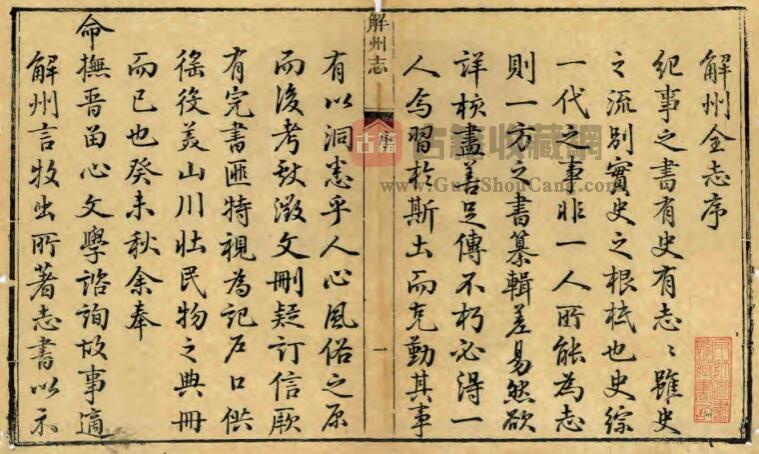 解州全志序
紀事之書有史有志〻雖史
之流別實史之根柢也史綜
一代之事非一人所能為志
則一方之書纂輯差易然欲
詳核盡善足傳不朽必得一
人焉習於斯土而克勤其事
解州志
序
一
有以洞悉乎人心風俗之原
而後考獻徵文刪疑訂信厥
有完書匪特視為記戶口供
徭役美山川壯民物之典冊
而已也癸未秋余奉
命撫晉留心文學諮詢故事適
解州言牧出所著志書以示
古籍收藏網
www.GujiShouCang.com